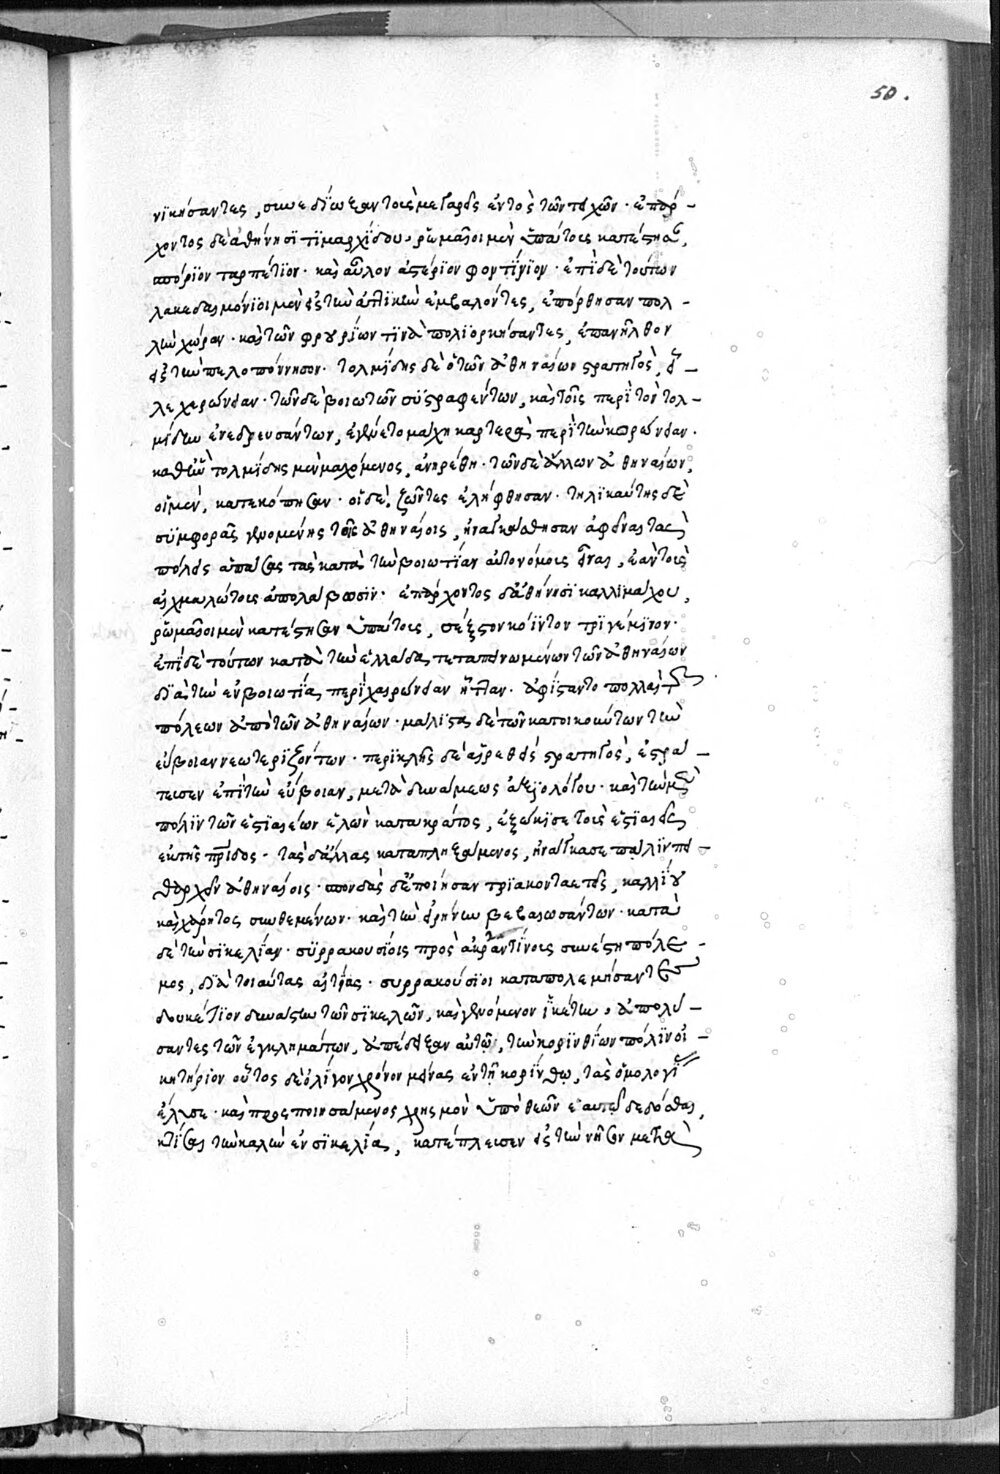 50.
νικήσαντες, συνεδίωξαν τοὺς μεγαρεῖς ἐντὸς τῶν τειχῶν· ἐπ' ἄρ-
χοντος δὲ ἀθήνησι τιμαρχίδου, ῥωμαῖοι μὲν ὑπάτους κατέστησαν,
σπόριον ταρπέτιον· καὶ αὖλον ἀστέριον φοντίνιον· ἐπὶ δὲ τούτων
λακεδαιμόνιοι μὲν εἰς τὴν ἀττικὴν ἐμβαλόντες, ἐπόρθησαν πολ-
λὴν χώραν· καὶ τῶν φρουρίων τινὰ πολιορκήσαντες, ἐπανῆλθον
εἰς τὴν πελοπόννησον· τολμίδης δὲ ὁ τῶν ἀθηναίων στρατηγὸς, εἷ-
λε χερώνειαν· τῶν δὲ βοιωτῶν συστραφέντων, καὶ τοῖς περὶ τὸν τολ-
μίδην ἐνεδρευσάντων, ἐγένετο μάχη καρτερὰ περὶ τὴν κορώνειαν·
καθ' ἣν τολμίδης μὲν μαχόμενος, ἀνηρέθη· τῶν δὲ ἄλλων ἀθηναίων,
οἱ μὲν, κατεκόπησαν· οἱ δὲ, ζῶντες ἐλήφθησαν· τηλικαύτης δὲ
συμφορᾶς γενομένης τοῖς ἀθηναίοις, ἠναγκάσθησαν ἀφεῖναι τὰς
πόλεις ἁπάσας τὰς κατὰ τὴν βοιωτίαν αὐτονόμους εἶναι, ἐὰν τοὺς
αἰχμαλώτους ἀπολάβωσιν· ἐπ' ἄρχοντος δ' ἀθήνησι καλλιμάχου,
ῥωμαῖοι μὲν κατέστησαν ὑπάτους, σέξστον κόϊντον τριγέμινον·
ἐπὶ δὲ τούτων κατὰ τὴν ἑλλάδα, τεταπεινωμένων τῶν ἀθηναίων
διὰ τὴν ἐν βοιωτίᾳ περὶ χαιρώνειαν ἧτταν· ἀφίσταντο πολλαὶ τῶν
πόλεων ἀπὸ τῶν ἀθηναίων· μάλιστα δὲ τῶν κατοικούντων τὴν
εὔβοιαν νεωτεριζόντων· περικλῆς δὲ αἱρεθεὶς στρατηγὸς, ἐστρά-
τευσεν ἐπὶ τὴν εὔβοιαν, μετὰ δυνάμεως ἀξιολόγου· καὶ τὴν μὲν
πόλιν τῶν ἑστιαιέων ἑλὼν κατὰ κράτος, ἐξώκισε τοὺς ἑστιαιεῖς
ἐκ τῆς πατρίδος· τὰς δ' ἄλλας καταπληξάμενος, ἠνάγκασε πάλιν πει-
θαρχεῖν ἀθηναίοις· σπονδὰς δ' ἐποίησαν τριακονταετεῖς, καλλίου
καὶ χάρητος συνθεμένων· καὶ τὴν εἰρήνην βεβαιωσάντων· κατὰ
δὲ τὴν σικελίαν· συρρακουσίοις πρὸς ἀκραντίνους συνέστη πόλε-
μος, διὰ τοιαύτας αἰτίας· συρρακούσιοι καταπολεμήσαντες
δουκέτιον δυνάστην τῶν σικελῶν, καὶ γενόμενον ἱκέτην, ἀπολύ-
σαντες τῶν ἐγκλημάτων, ἀπέδειξαν αὐτῷ, τὴν κορινθίων πόλιν οἰ-
κητήριον· οὗτος δὲ ὀλίγον χρόνον μείνας ἐν τῇ κορίνθῳ, τὰς ὁμολογίας
ἔλυσε· καὶ προσποιησάμενος χρησμὸν ὑπὸ θεῶν ἑαυτῷ δεδόσθαι,
κτίσαι τὴν καλὴν ἐν σικελίᾳ, κατέπλευσεν εἰς τὴν νῆσον μετὰ